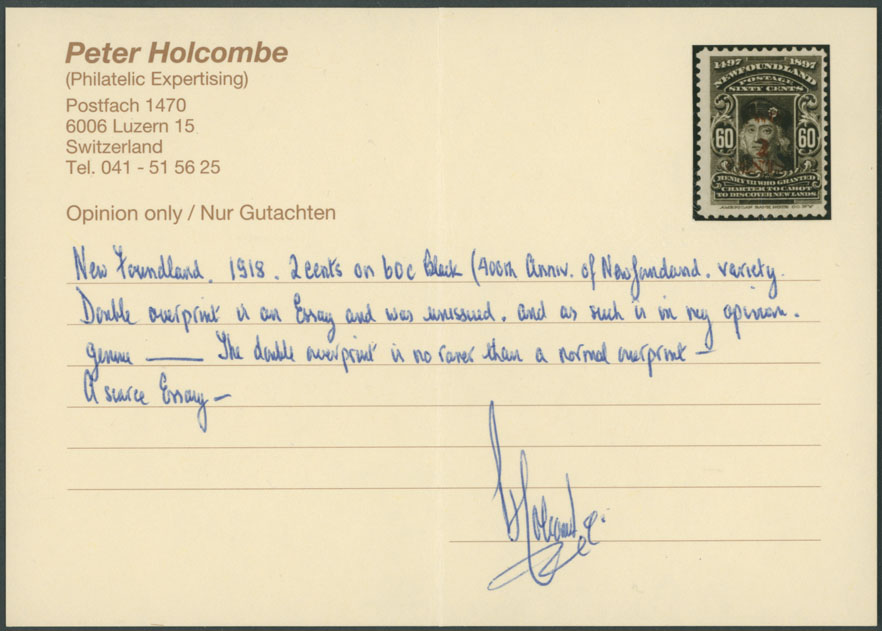 Peter Holcombe
(Philatelic Expertising)
Postfach 1470
6006 Luzern 15
Switzerland
Tel. 041 - 51 56 25
Opinion only / Nur Gutachten
1497 1897
NEWFOUNDLAND
POSTAGE
SIXTY CENTS
60 60
2
HENRY VII WHO GRANTED
CHARTER TO CABOT
TO DISCOVER NEW LANDS
New Foundland. 1918. 2cents on 60c Black (400th Anniv. of Newfoundland. variety.
Double overprint is an Essay and was unissued. and as such is in my opinion.
genuine — The double overprint is no rarer than a normal overprint —
A scarce Essay —